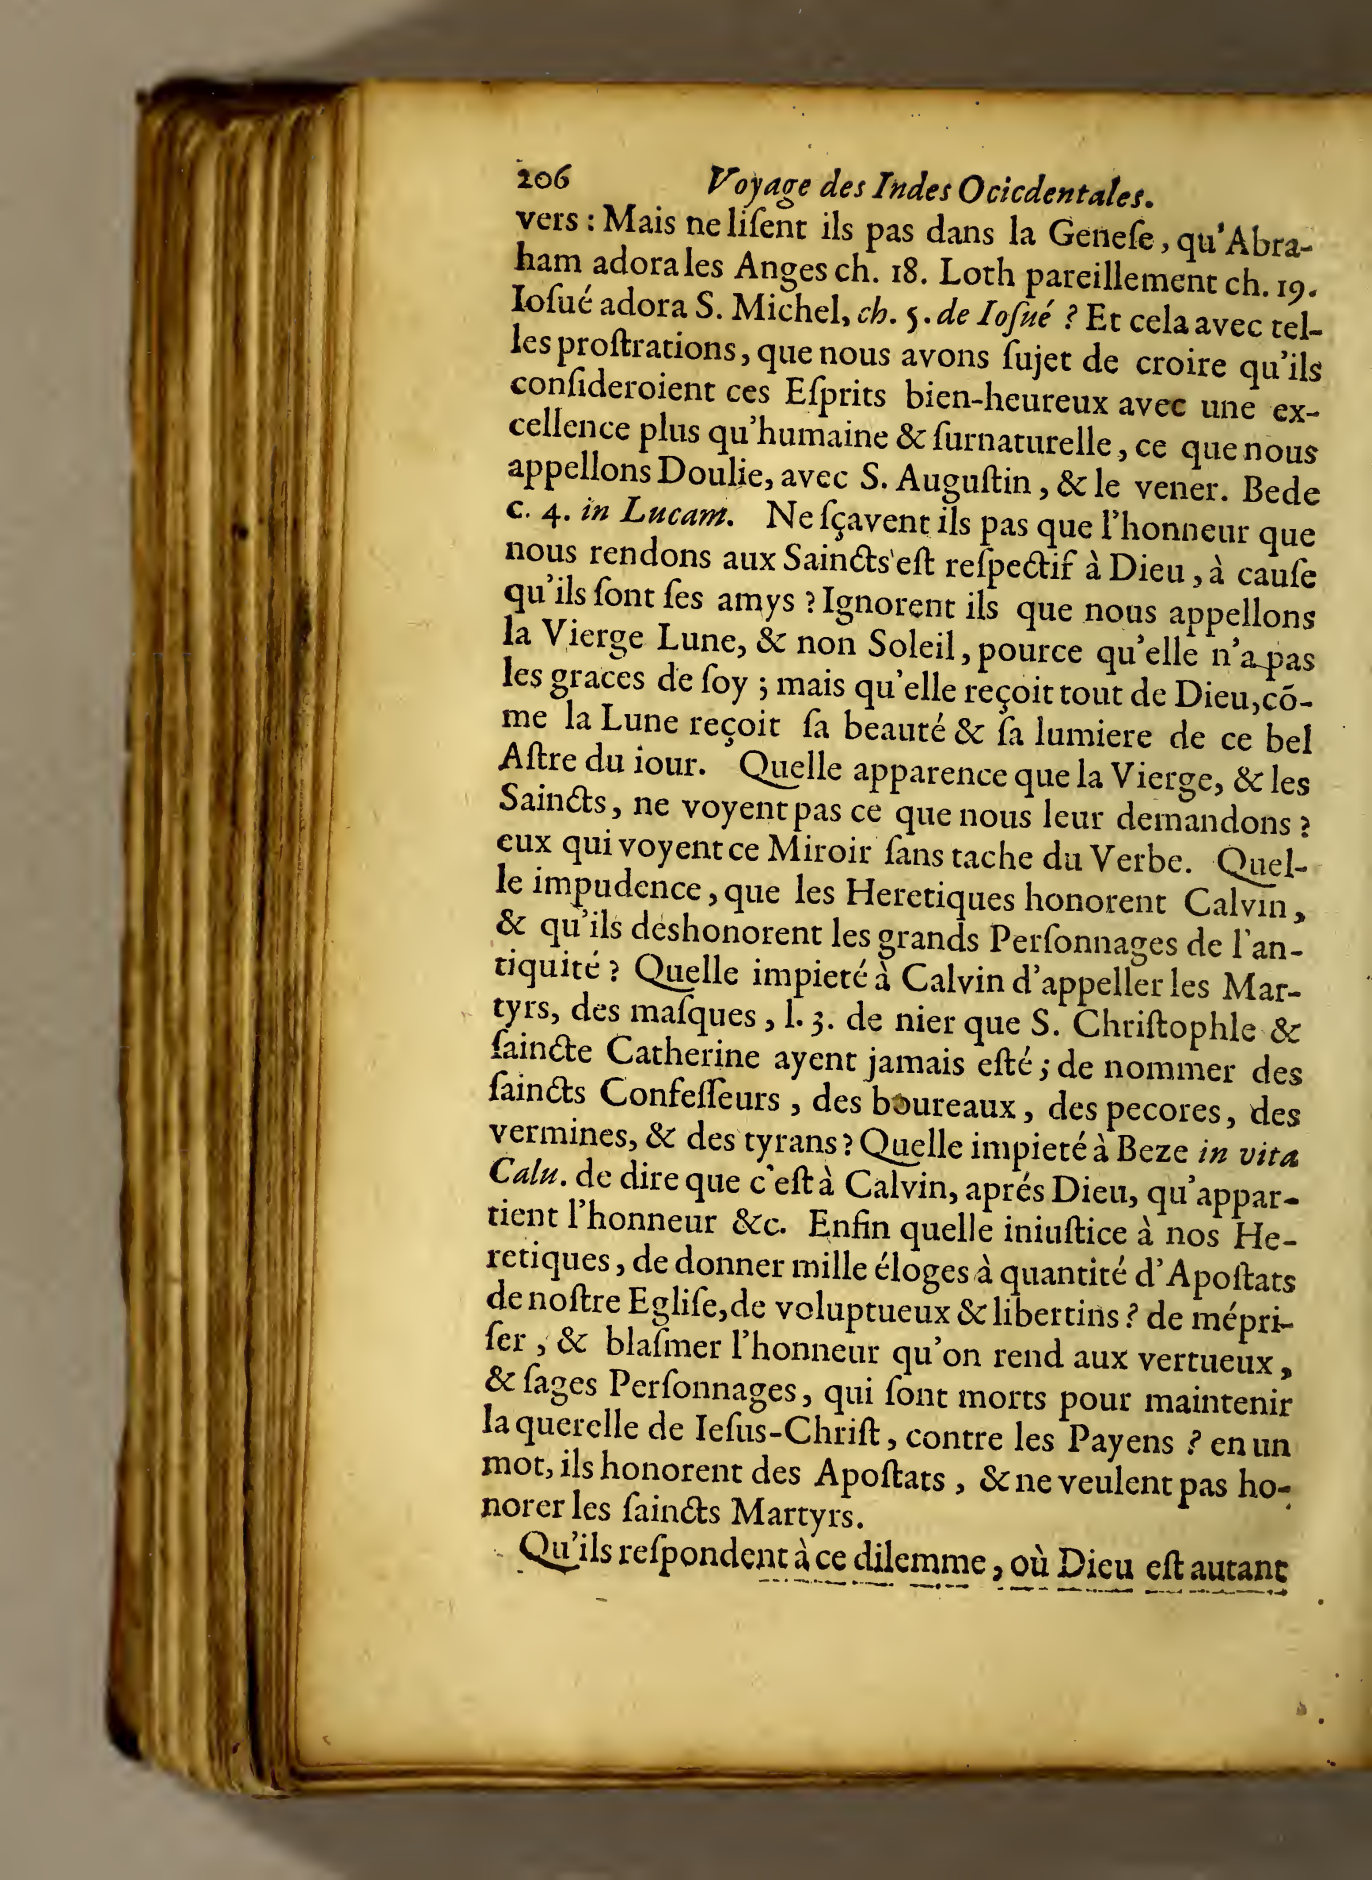 206 Voyage des Indes Ocicdentales.
vers : Mais ne liſent ils pas dans la Geneſe, qu'Abra-
ham adora les Anges ch. 18. Loth pareillement ch. 19.
Ioſué adora S. Michel, ch. 5. de Ioſué ? Et cela avec tel-
les proſtrations, que nous avons ſujet de croire qu'ils
conſideroient ces Eſprits bien-heureux avec une ex-
cellence plus qu'humaine & ſurnaturelle, ce que nous
appellons Doulie, avec S. Auguſtin, & le vener. Bede
c. 4. in Lucam. Ne ſçavent ils pas que l'honneur que
nous rendons aux Saincts eſt reſpectif à Dieu, à cauſe
qu'ils ſont ſes amys ? Ignorent ils que nous appellons
la Vierge Lune, & non Soleil, pource qu'elle n'a pas
les graces de ſoy ; mais qu'elle reçoit tout de Dieu, cō-
me la Lune reçoit ſa beauté & ſa lumiere de ce bel
Aſtre du iour. Quelle apparence que la Vierge, & les
Saincts, ne voyent pas ce que nous leur demandons ?
eux qui voyent ce Miroir ſans tache du Verbe. Quel-
le impudence, que les Heretiques honorent Calvin,
& qu'ils deshonorent les grands Perſonnages de l'an-
tiquité ? Quelle impieté à Calvin d'appeller les Mar-
tyrs, des maſques, l. 3. de nier que S. Chriſtophle &
ſaincte Catherine ayent jamais eſté ; de nommer des
ſaincts Confeſſeurs, des boureaux, des pecores, des
vermines, & des tyrans ? Quelle impieté à Beze in vita
Calu. de dire que c'eſt à Calvin, aprés Dieu, qu'appar-
tient l'honneur &c. Enfin quelle iniuſtice à nos He-
retiques, de donner mille éloges à quantité d'Apoſtats
de noſtre Egliſe, de voluptueux & libertins ? de mépri-
ſer, & blaſmer l'honneur qu'on rend aux vertueux,
& ſages Perſonnages, qui ſont morts pour maintenir
la querelle de Ieſus-Chriſt, contre les Payens ? en un
mot, ils honorent des Apoſtats, & ne veulent pas ho-
norer les ſaincts Martyrs.
Qu'ils reſpondent à ce dilemme, où Dieu eſt autant